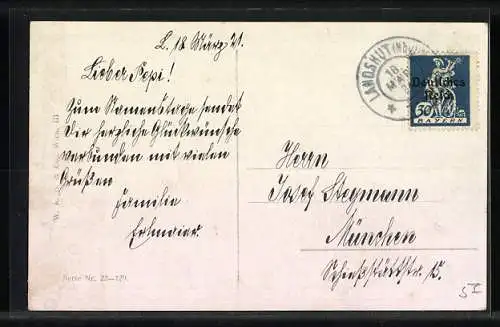 L. 18 März 21.
Lieber Pepi!
Zum Namenstage sendet
Dir herzliche Glückwünsche
verbunden mit vielen
Grüßen
Familie
Erlmaier.
Serie Nr. 22-
LANDSHUT
18
MÄR
Deutsches
Reich
30
BAYERN
Herrn
Josef Stegmann
München
Schießstättstr.